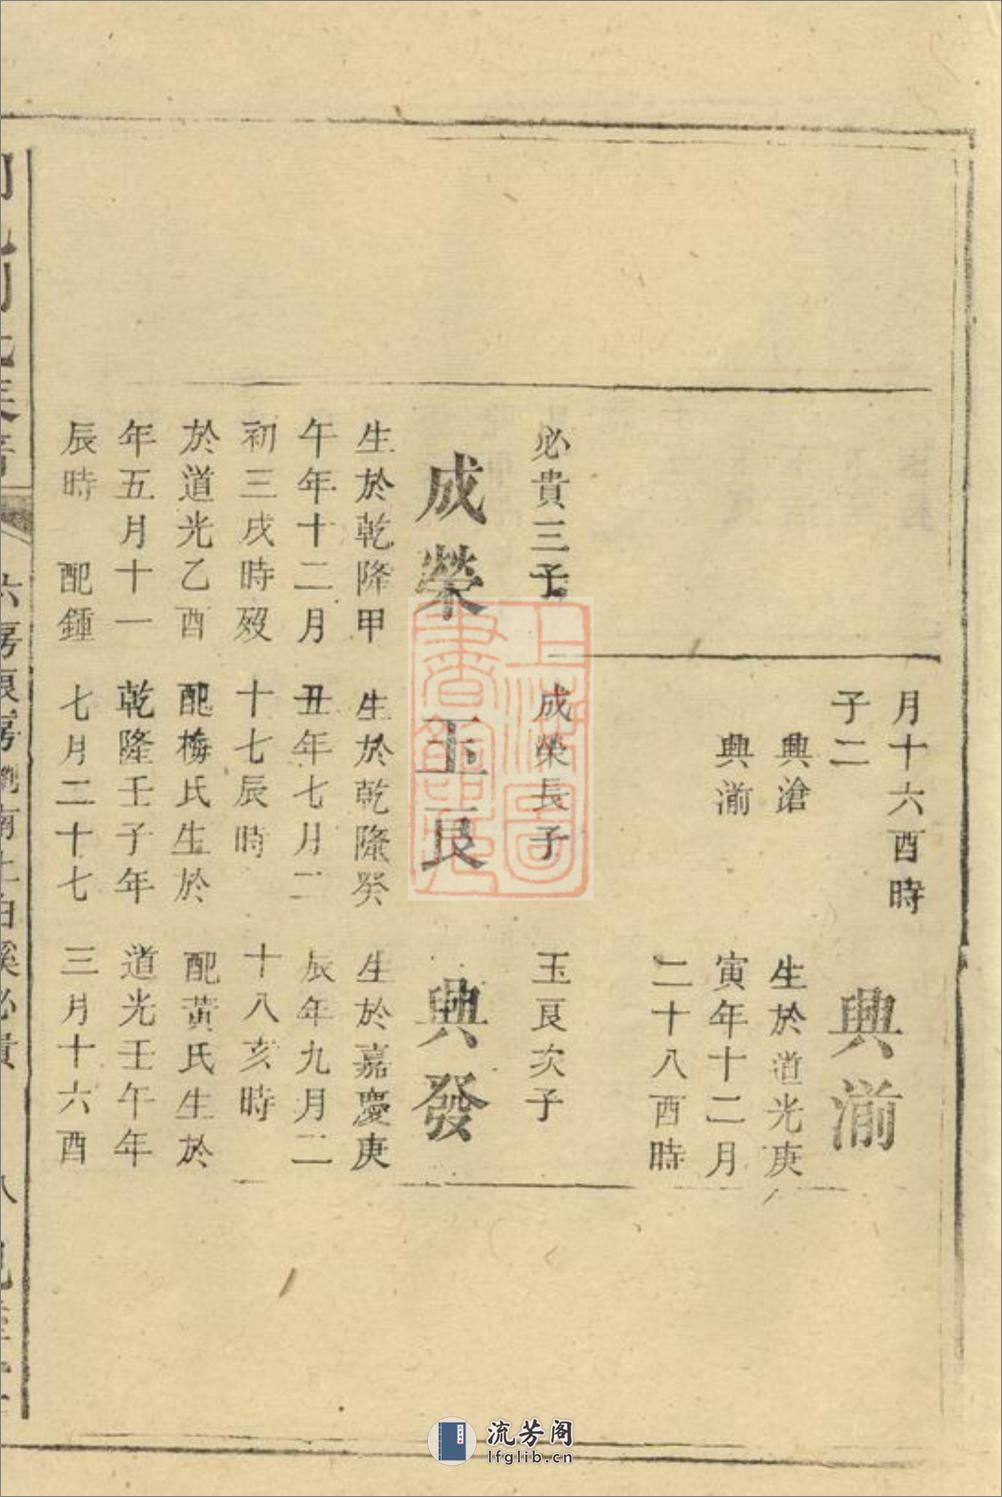 月十六酉時
子二
興滄
興湔
興湔
生於道光庚
寅年十二月
二十八酉時
必貴三子
成榮
生於乾隆甲
午年十二月
初三戌時歿
於道光乙酉
年五月十一
辰時 配鍾
成榮長子
玉良
生於乾隆癸
丑年七月二
十七辰時
配梅氏生於
乾隆壬子年
七月二十七
玉良次子
興發
生於嘉慶庚
辰年九月二
十八亥時
配黃氏生於
道光壬午年
三月十六酉
上海圖
書館藏
流芳阁
lfglib.cn